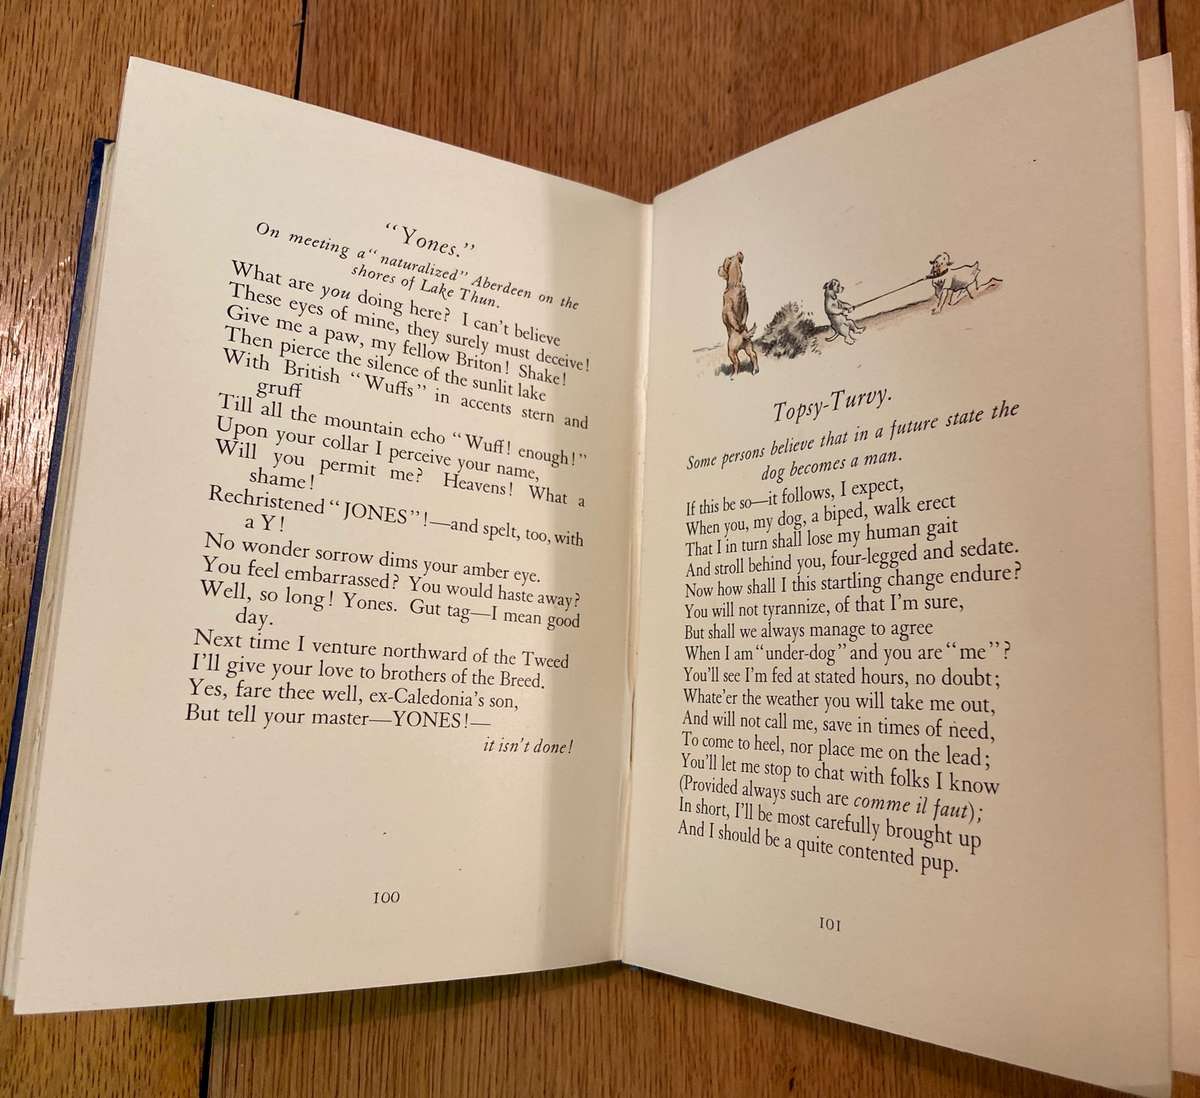 "Yones."
On meeting a "naturalized" Aberdeen on the
shores of Lake Thun.
What are you doing here? I can't believe
These eyes of mine, they surely must deceive!
Give me a paw, my fellow Briton! Shake!
Then pierce the silence of the sunlit lake
With British "Wuffs" in accents stern and
gruff
Till all the mountain echo "Wuff! enough!"
Upon your collar I perceive your name,
Will you permit me? Heavens! What a
shame!
Rechristened "JONES"!—and spelt, too, with
a Y!
No wonder sorrow dims your amber eye.
You feel embarrassed? You would haste away?
Well, so long! Yones. Gut tag—I mean good
day.
Next time I venture northward of the Tweed
I'll give your love to brothers of the Breed.
Yes, fare thee well, ex-Caledonia's son,
But tell your master—YONES!—
it isn't done!
100
Topsy-Turvy.
Some persons believe that in a future state the
dog becomes a man.
If this be so—it follows, I expect,
When you, my dog, a biped, walk erect
That I in turn shall lose my human gait
And stroll behind you, four-legged and sedate.
Now how shall I this startling change endure?
You will not tyrannize, of that I'm sure,
But shall we always manage to agree
When I am "under-dog" and you are "me"?
You'll see I'm fed at stated hours, no doubt;
Whate'er the weather you will take me out,
And will not call me, save in times of need,
To come to heel, nor place me on the lead;
You'll let me stop to chat with folks I know
(Provided always such are comme il faut);
In short, I'll be most carefully brought up
And I should be a quite contented pup.
101